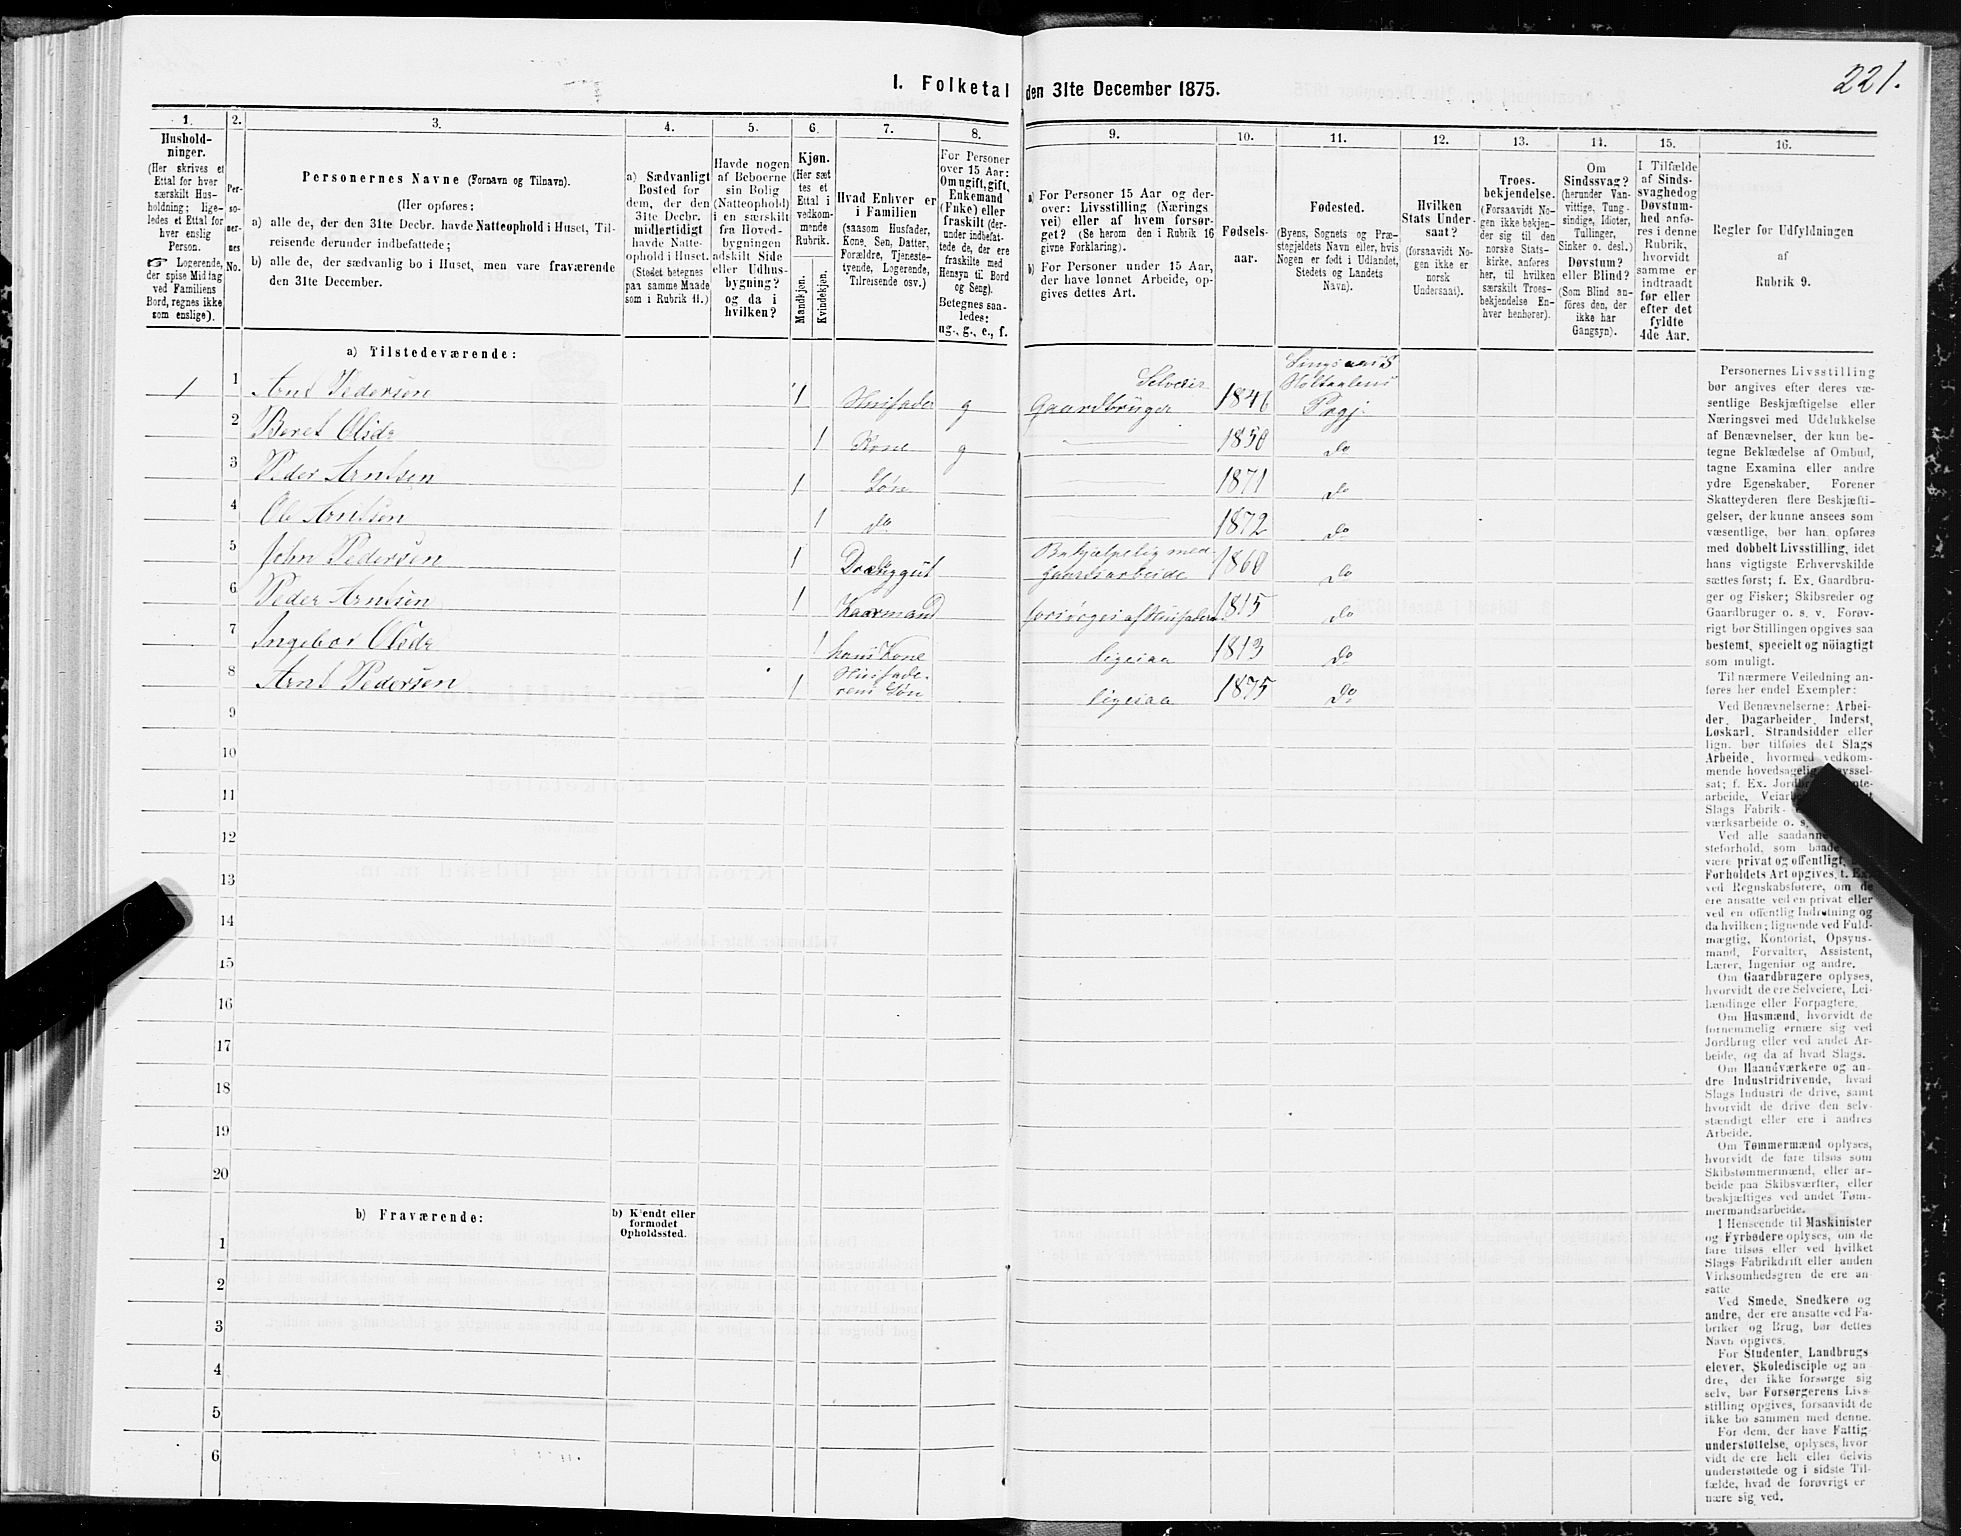 221.
I. Folketal den 31te December 1875.
1.
Hushold-
ninger.
(Her skrives et
Ettal for hver
særskilt Hus-
holdning; lige-
ledes et Ettal for
hver enslig
Person.
☞ Logerende,
der spise Middag
ved Familiens
Bord, regnes ikke
som enslige).
2.
Per-
so-
ner-
nes
No.
3.
Personernes Navne (Fornavn og Tilnavn).
(Her opføres:
a) alle de, der den 31te Decbr. havde Natteophold i Huset, Til-
reisende derunder indbefattede;
b) alle de, der sædvanlig bo i Huset, men vare fraværende
den 31te December.
4.
a) Sædvanligt
Bosted for
dem, der den
31te Decbr.
midlertidigt
havde Natte-
ophold i Huset.
(Stedet betegnes
paa samme Maade
som i Rubrik 11.)
5.
Havde nogen
af Beboerne
sin Bolig
(Natteophold)
i en særskilt
fra Hoved-
bygningen
adskilt Side
eller Udhus-
bygning?
og da i
hvilken?
6.
Kjøn.
(Her sæt
tes et
Ettal i
vedkom-
mende
Rubrik.
Mandkjøn.
Kvindekjøn.
7.
Hvad Enhver er
i Familien
(saasom Husfader,
Kone, Søn, Datter,
Forældre, Tjeneste-
tyende, Logerende,
Tilreisende osv.)
8.
For Personer
over 15 Aar:
Om ugift, gift,
Enkemand
(Enke) eller
fraskilt (der-
under indbefat-
tede de, der ere
fraskilte med
Hensyn til Bord
og Seng).
Betegnes saa-
ledes:
ug., g., e., f.
9.
a) For Personer 15 Aar og der-
over: Livsstilling (Nærings
vei) eller af hvem forsør-
get? (Se herom den i Rubrik 16
givne Forklaring).
b) For Personer under 15 Aar,
der have lønnet Arbeide, op-
gives dettes Art.
10.
Fødsels-
aar.
11.
Fødested.
(Byens, Sognets og Præ-
stegjeldets Navn eller, hvis
Nogen er født i Udlandet,
Stedets og Landets
Navn).
12.
Hvilken
Stats Under-
saat?
(forsaavidt No-
gen ikke er
norsk
Undersaat).
13.
Troes-
bekjendelse.
(Forsaavidt No-
gen ikke bekjen-
der sig til den
norske Stats-
kirke, anføres
her, til hvilken
særskilt Troes-
bekjendelse En-
hver henhører).
14.
Om
Sindssvag?
(herunder Van-
vittige, Tung-
sindige, Idioter,
Tullinger,
Sinker o. desl.)
Døvstum?
eller Blind?
(Som Blind an-
føres den, der
ikke har
Gangsyn).
15.
I Tilfælde
af Sinds-
svaghed og
Døvstum-
hed anfø-
res i denne
Rubrik,
hvorvidt
samme er
indtraadt
før eller
efter det
fyldte
4de Aar.
16.
Regler for Udfyldningen
af
Rubrik 9.
a) Tilstedeværende:
1 1 Arnt Pedersen 1 Husfader g Selveier Gaardbruger 1846 Singsaas Holtaalens Prgj.
2 Beret Olsdr 1 Kone g 1850 Do
3 Peder Arntsen 1 Søn 1871 Do
4 Ole Arntsen 1 do 1872 Do
5 John Pedersen 1 Behjælpelig med Gaardsarbeide 1860 Do
6 Peder Arntsen 1 Kaarmand forsørges af Husfaderen 1815 Do
7 Ingebor Olsdr 1 hans Kone ligesaa 1813 Do
8 Arnt Pedersen 1 Husfade-rens Søn ligesaa 1875 Do
9
10
11
12
13
14
15
16
17
18
19
20
b) Fraværende:
b) Kjendt eller
formodet
Opholdssted.
1
2
3
4
5
6
Personernes Livsstilling
bør angives efter deres væ-
sentlige Beskjæftigelse eller
Næringsvei med Udelukkelse
af Benævnelser, der kun be-
tegne Beklædelse af Ombud,
tagne Examina eller andre
ydre Egenskaber. Forener
Skatteyderen flere Beskjæfti-
gelser, der kunne ansees som
væsentlige, bør han opføres
med dobbelt Livsstilling, idet
hans vigtigste Erhvervskilde
sættes først; f. Ex. Gaardbru-
ger og Fisker; Skibsreder og
Gaardbruger o. s. v. Forøv-
rigt bør Stillingen opgives saa
bestemt, specielt og nøiagtigt
som muligt.
Til nærmere Veiledning an-
føres her endel Exempler:
Ved Benævnelserne: Arbei-
der, Dagarbeider, Inderst,
Løskarl, Strandsidder eller
lign. bør tilføies det Slags
Arbeide, hvormed vedkom-
mende hovedsagelig
sat; f. Ex.
arbeide,
Slags Fabrik-
værksarbeide o. s.
Ved alle
steforhold, som
være privat og offentligt,
Forholdets Art opgives, f. Ex.
ved Regnskabsførere, om de
ere ansatte ved en privat eller
ved en offentlig Indretning og
da hvilken; lignende ved Fuld-
mægtig, Kontorist, Opsyns-
mand, Forvalter, Assistent,
Lærer, Ingeniør og andre.
Om Gaardbrugere oplyses,
hvorvidt de ere Selveiere, Lei-
lændinge eller Forpagtere.
Om Husmænd, hvorvidt de
fornemmelig ernære sig ved
Jordbrug eller ved andet Ar-
beide, og da af hvad Slags.
Om Haandværkere og an-
dre Industridrivende, hvad
Slags Industri de drive, samt
hvorvidt de drive den selv-
stændigt eller ere i andres
Arbeide.
Om Tømmermænd oplyses,
hvorvidt de fare tilsøs som
Skibstømmermænd, eller ar-
beide paa Skibsværfter, eller
beskjæftiges ved andet Tøm-
mermandsarbeide.
I Henseende til Maskinister
og Fyrbødere oplyses, om de
fare tilsøs eller ved hvilket
Slags Fabrikdrift eller anden
Virksomhedsgren de ere an-
satte.
Ved Smede, Snedkere og
andre, der ere ansatte ved Fa-
briker og Brug, bør dettes
Navn opgives.
For Studenter, Landbrugs
elever, Skoledisciple og an
dre, der ikke forsørge sig
selv, bør Forsørgerens Livs-
stilling opgives, forsaavidt de
ikke bo sammen med denne.
For dem, der have Fattig
understøttelse, oplyses, hvor
vidt de ere helt eller delvis
understøttede og i sidste Til-
fælde, hvad de forøvrigt er
nære sig ved.